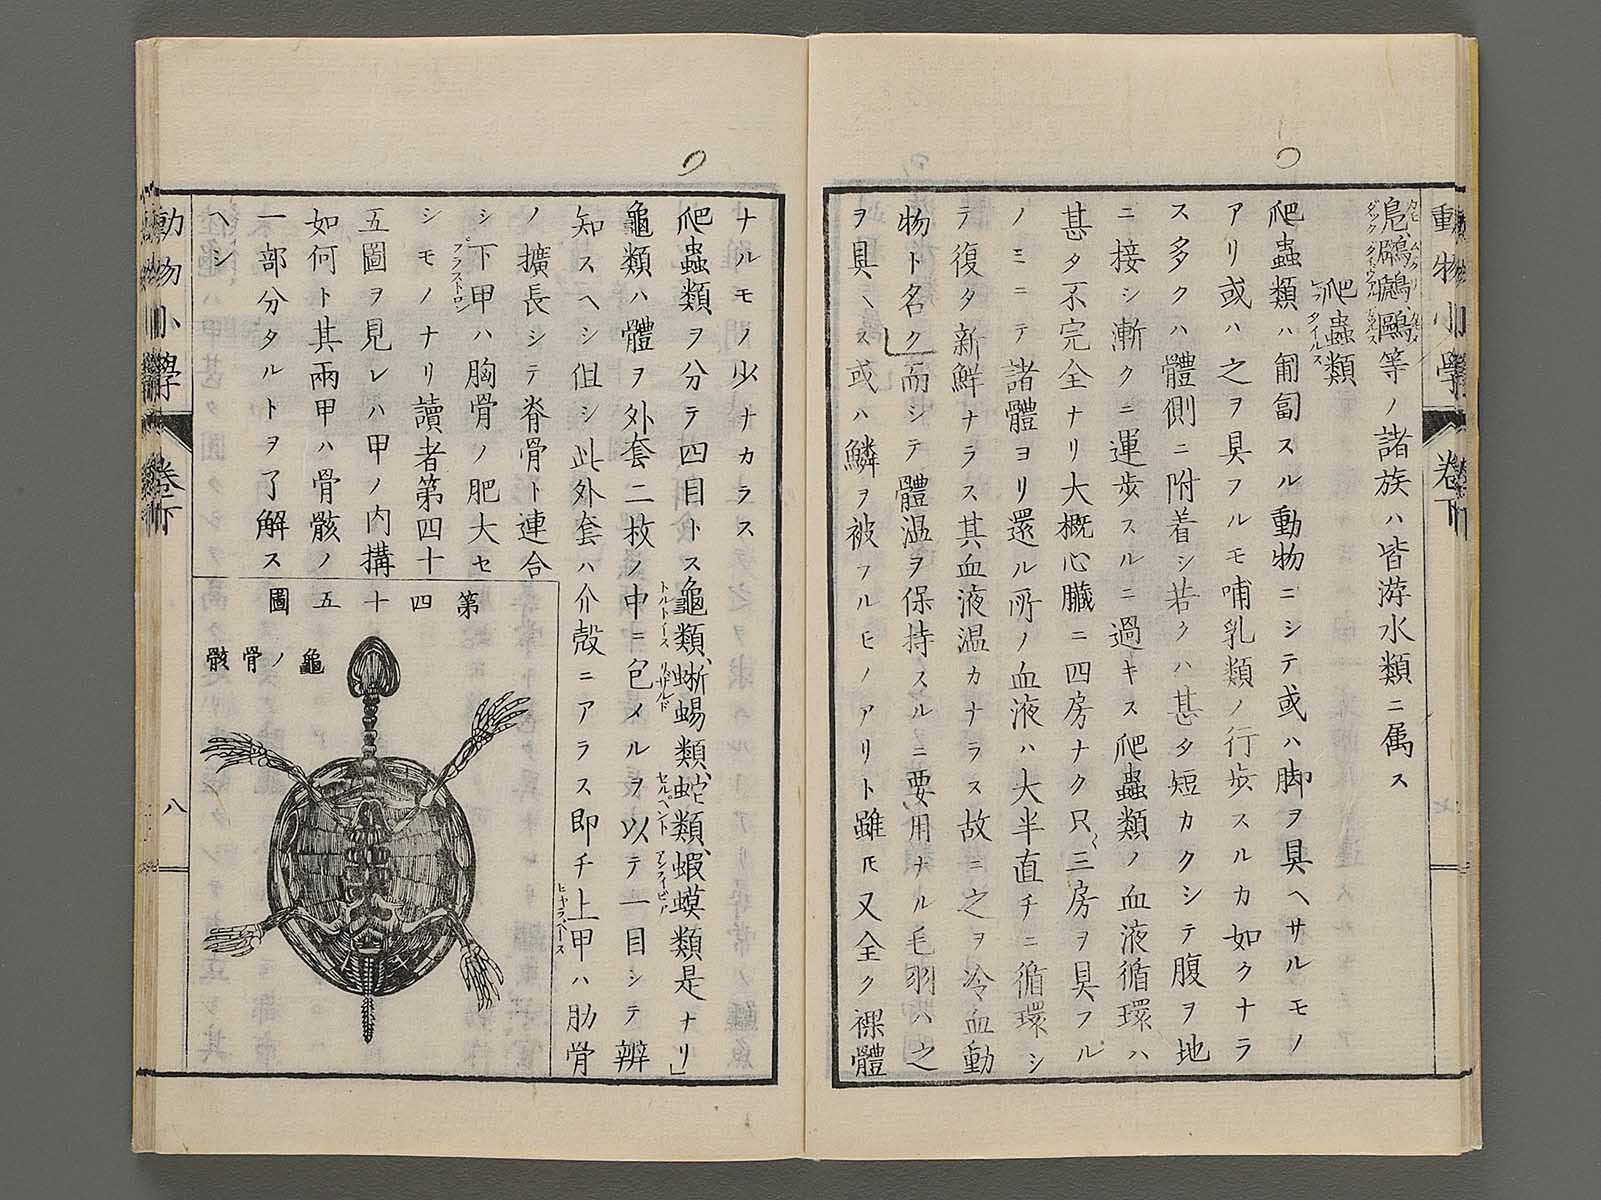 動物小學 卷下
鳬、鸊鷉、鷗等ノ諸族ハ皆游水類ニ属ス
爬蟲類
爬蟲類ハ匍匐スル動物ニシテ或ハ脚ヲ具ヘサルモノ
アリ或ハ之ヲ具フルモ哺乳類ノ行歩スルカ如クナラ
ス多クハ體側ニ附着シ若クハ甚タ短カクシテ腹ヲ地
ニ接シ漸クニ運歩スルニ過キス爬蟲類ノ血液循環ハ
甚タ不完全ナリ大概心臓ニ四房ナク只三房ヲ具フル
ノミニテ諸體ヨリ還ル所ノ血液ハ大半直チニ循環シ
テ復タ新鮮ナラス其血液温カナラス故ニ之ヲ冷血動
物ト名ク而シテ體温ヲ保持スルニ要用ナル毛羽ハ之
ヲ具ヘス或ハ鱗ヲ被フルヒノアリト雖𪜈又全ク裸體
ナルモノ少ナカラス
爬蟲類ヲ分テ四目トス龜類、蜥蜴類、蛇類、蝦蟆類是ナリ」
トルトイース リザルド セルペント アンフイビア
龜類ハ體ヲ外套二枚ノ中ニ包メルヲ以テ一目シテ辨
知スヘシ但シ此外套ハ介殻ニアラス即チ上甲ハ肋骨
ノ擴長シテ脊骨ト連合
シ下甲ハ胸骨ノ肥大セ
プラストロン
シモノナリ讀者第四十
五圖ヲ見レハ甲ノ内搆
如何ト其兩甲ハ骨骸ノ
一部分タルトヲ了解ス
ヘシ
第四十五圖
龜ノ骨骸
動物小學 卷下 八